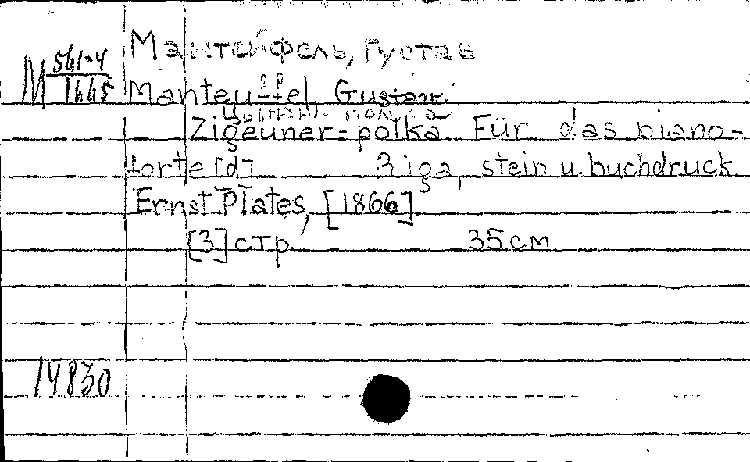 Мантейфель, Густав
M 561-4
1665
Manteuffel Gustav.
Zigeuner=polka. Für das piano-
forte [d]
Riga, stein u. buchdruck
Ernst Plates, [1866]
[3] стр 35 см
14830